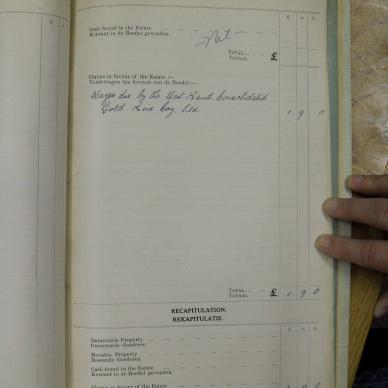 £ s. d.
Cash found in the Estate
Kontant in de Boedel gevonden
Nil
TOTAL
TOTAAL £
Claims in favour of the Estate :—
Vorderingen ten faveure van de Boedel:—
Wages due by the West Rand Consolidated
Gold Mine Coy. Ltd. 1 9 0
TOTAL
TOTAAL £ 1 9 0
RECAPITULATION.
REKAPITULATIE.
£ s. d.
Immovable Property
Onroerende Goederen
Movable Property
Roerende Goederen
Cash found in the Estate
Kontant in de Boedel gevonden
Claims in favour of the Estate